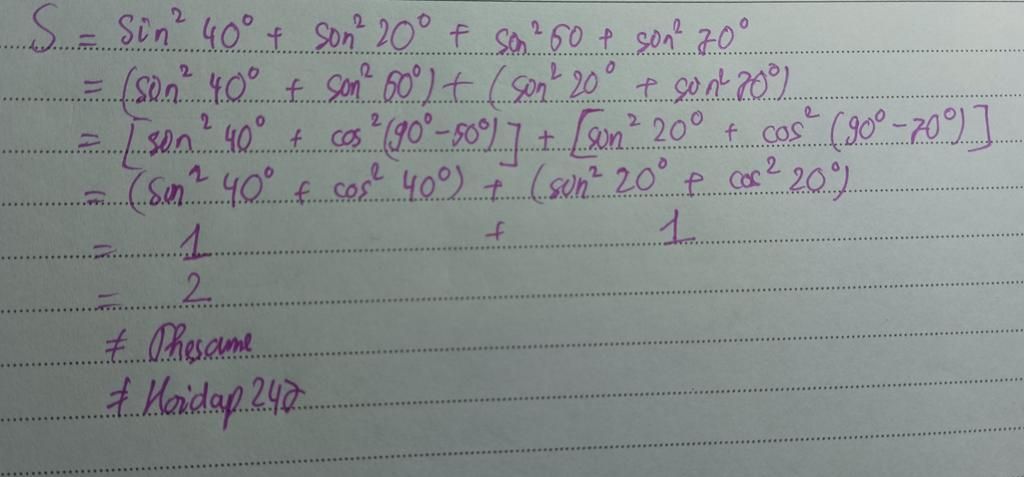 S = sin² 40° + sin² 20° + sin² 50 + sin² 70°
= (sin² 40° + sin² 50°) + (sin² 20° + sin² 70°)
= [sin² 40° + cos² (90° - 50°)] + [sin² 20° + cos² (90° - 70°)]
= (sin² 40° + cos² 40°) + (sin² 20° + cos² 20°)
= 1 + 1
= 2
≠ Thesame
≠ Hoidap 247